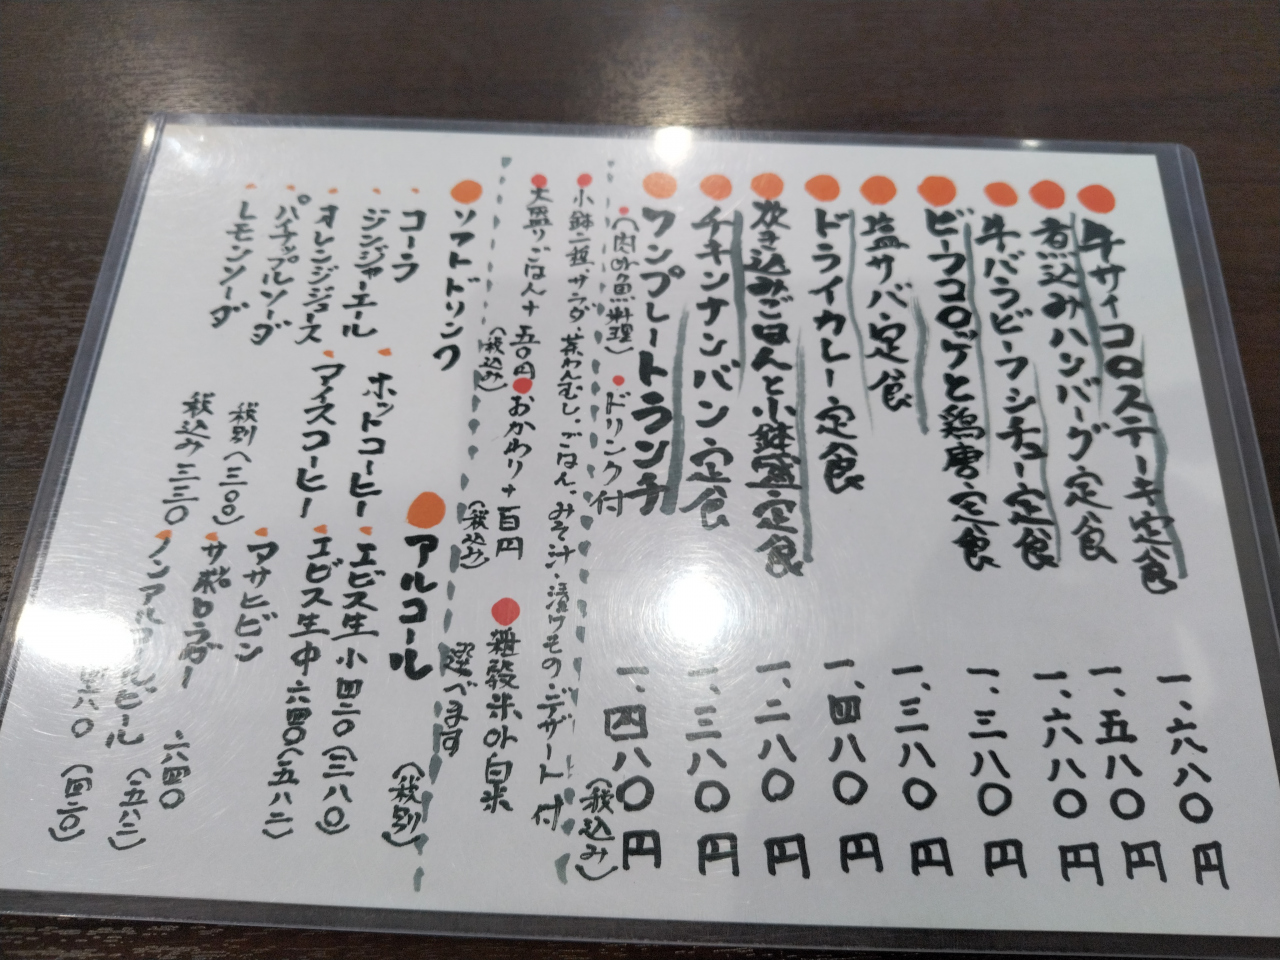 牛サイコロステーキ定食 一、六八〇円
煮込みハンバーグ定食 一、五八〇円
牛バラビーフシチュー定食 一、六八〇円
ビーフコロッケと鶏唐定食 一、三八〇円
塩サバ定食 一、三八〇円
ドライカレー定食 一、四八〇円
炊き込みごはんと小鉢盛定食 一、二八〇円
チキンナンバン定食 一、三八〇円
ワンプレートランチ 一、四八〇円
(肉or魚料理) ドリンク付 (税込み)
小鉢一種、サラダ、茶わんむし、ごはん、みそ汁、漬けもの デザート付
大盛りごはん+五〇円 おかわり+百円 雑穀米or白米
(税込み) (税込み) 選べます
ソフトドリンク
コーラ
ジンジャーエール
オレンジジュース
パイナップルソーダ
レモンソーダ
ホットコーヒー
アイスコーヒー
税別(三〇〇)
税込み三三〇
アルコール (税別)
エビス生小 四二〇(三八〇)
エビス生中 六四〇(五八二)
アサヒビン
サッポロラガー 六四〇 (五八二)
ノンアルコールビール 四六〇 (四二〇)